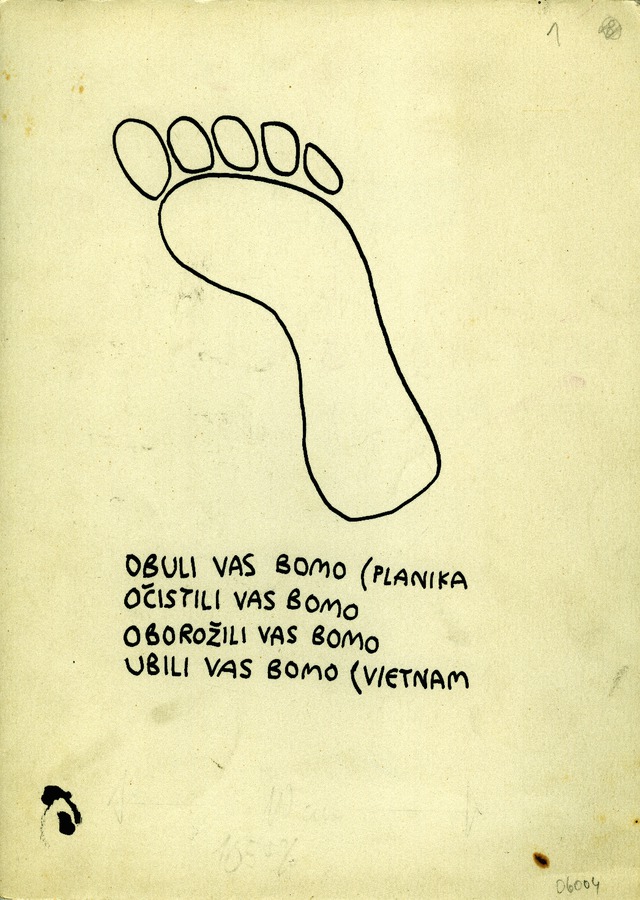 1
OBULI VAS BOMO (PLANIKA
OČISTILI VAS BOMO
OBOROŽILI VAS BOMO
UBILI VAS BOMO (VIETNAM
06004